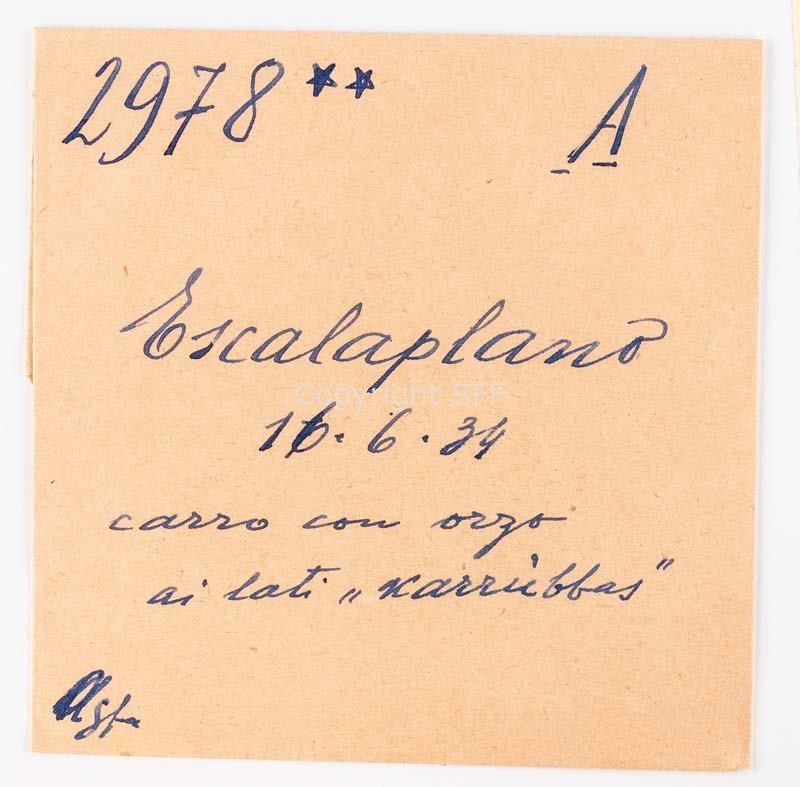 2978** A
Escalaplano
Copyright SFF
16. 6. 34
carro con orzo
ai lati „karrùbbas"
Agfa